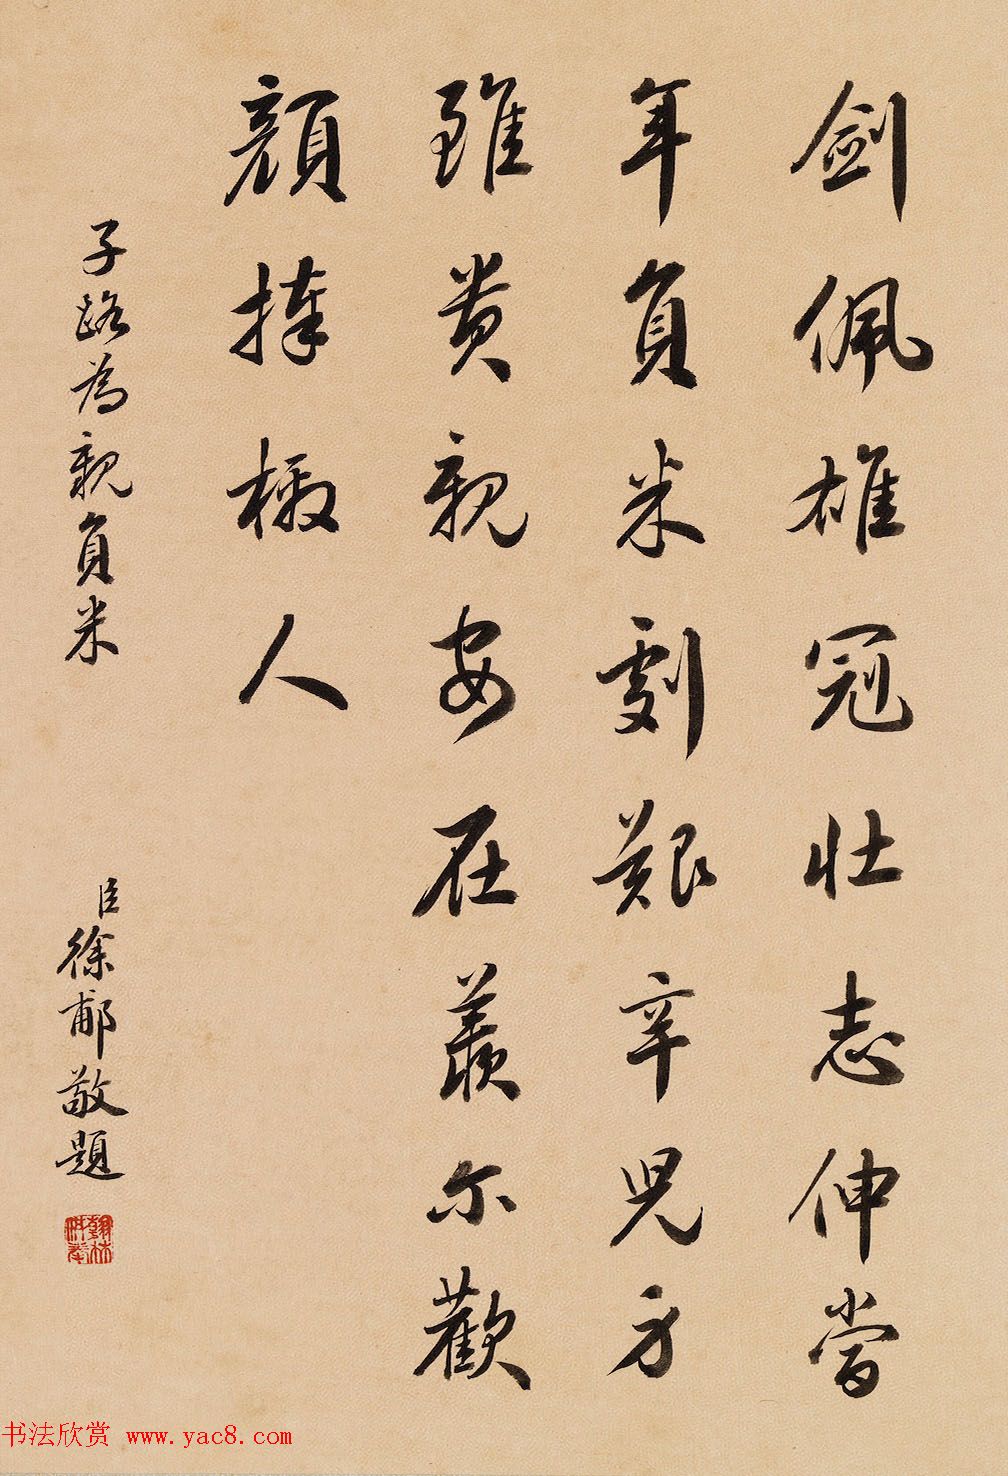 劍佩雄冠壯志伸當
年負米劇艱辛兒身
雖貴親安在羨尔歡
顏捧檄人
子路為親負米
臣徐郙敬題
书法欣赏 www.yac8.com